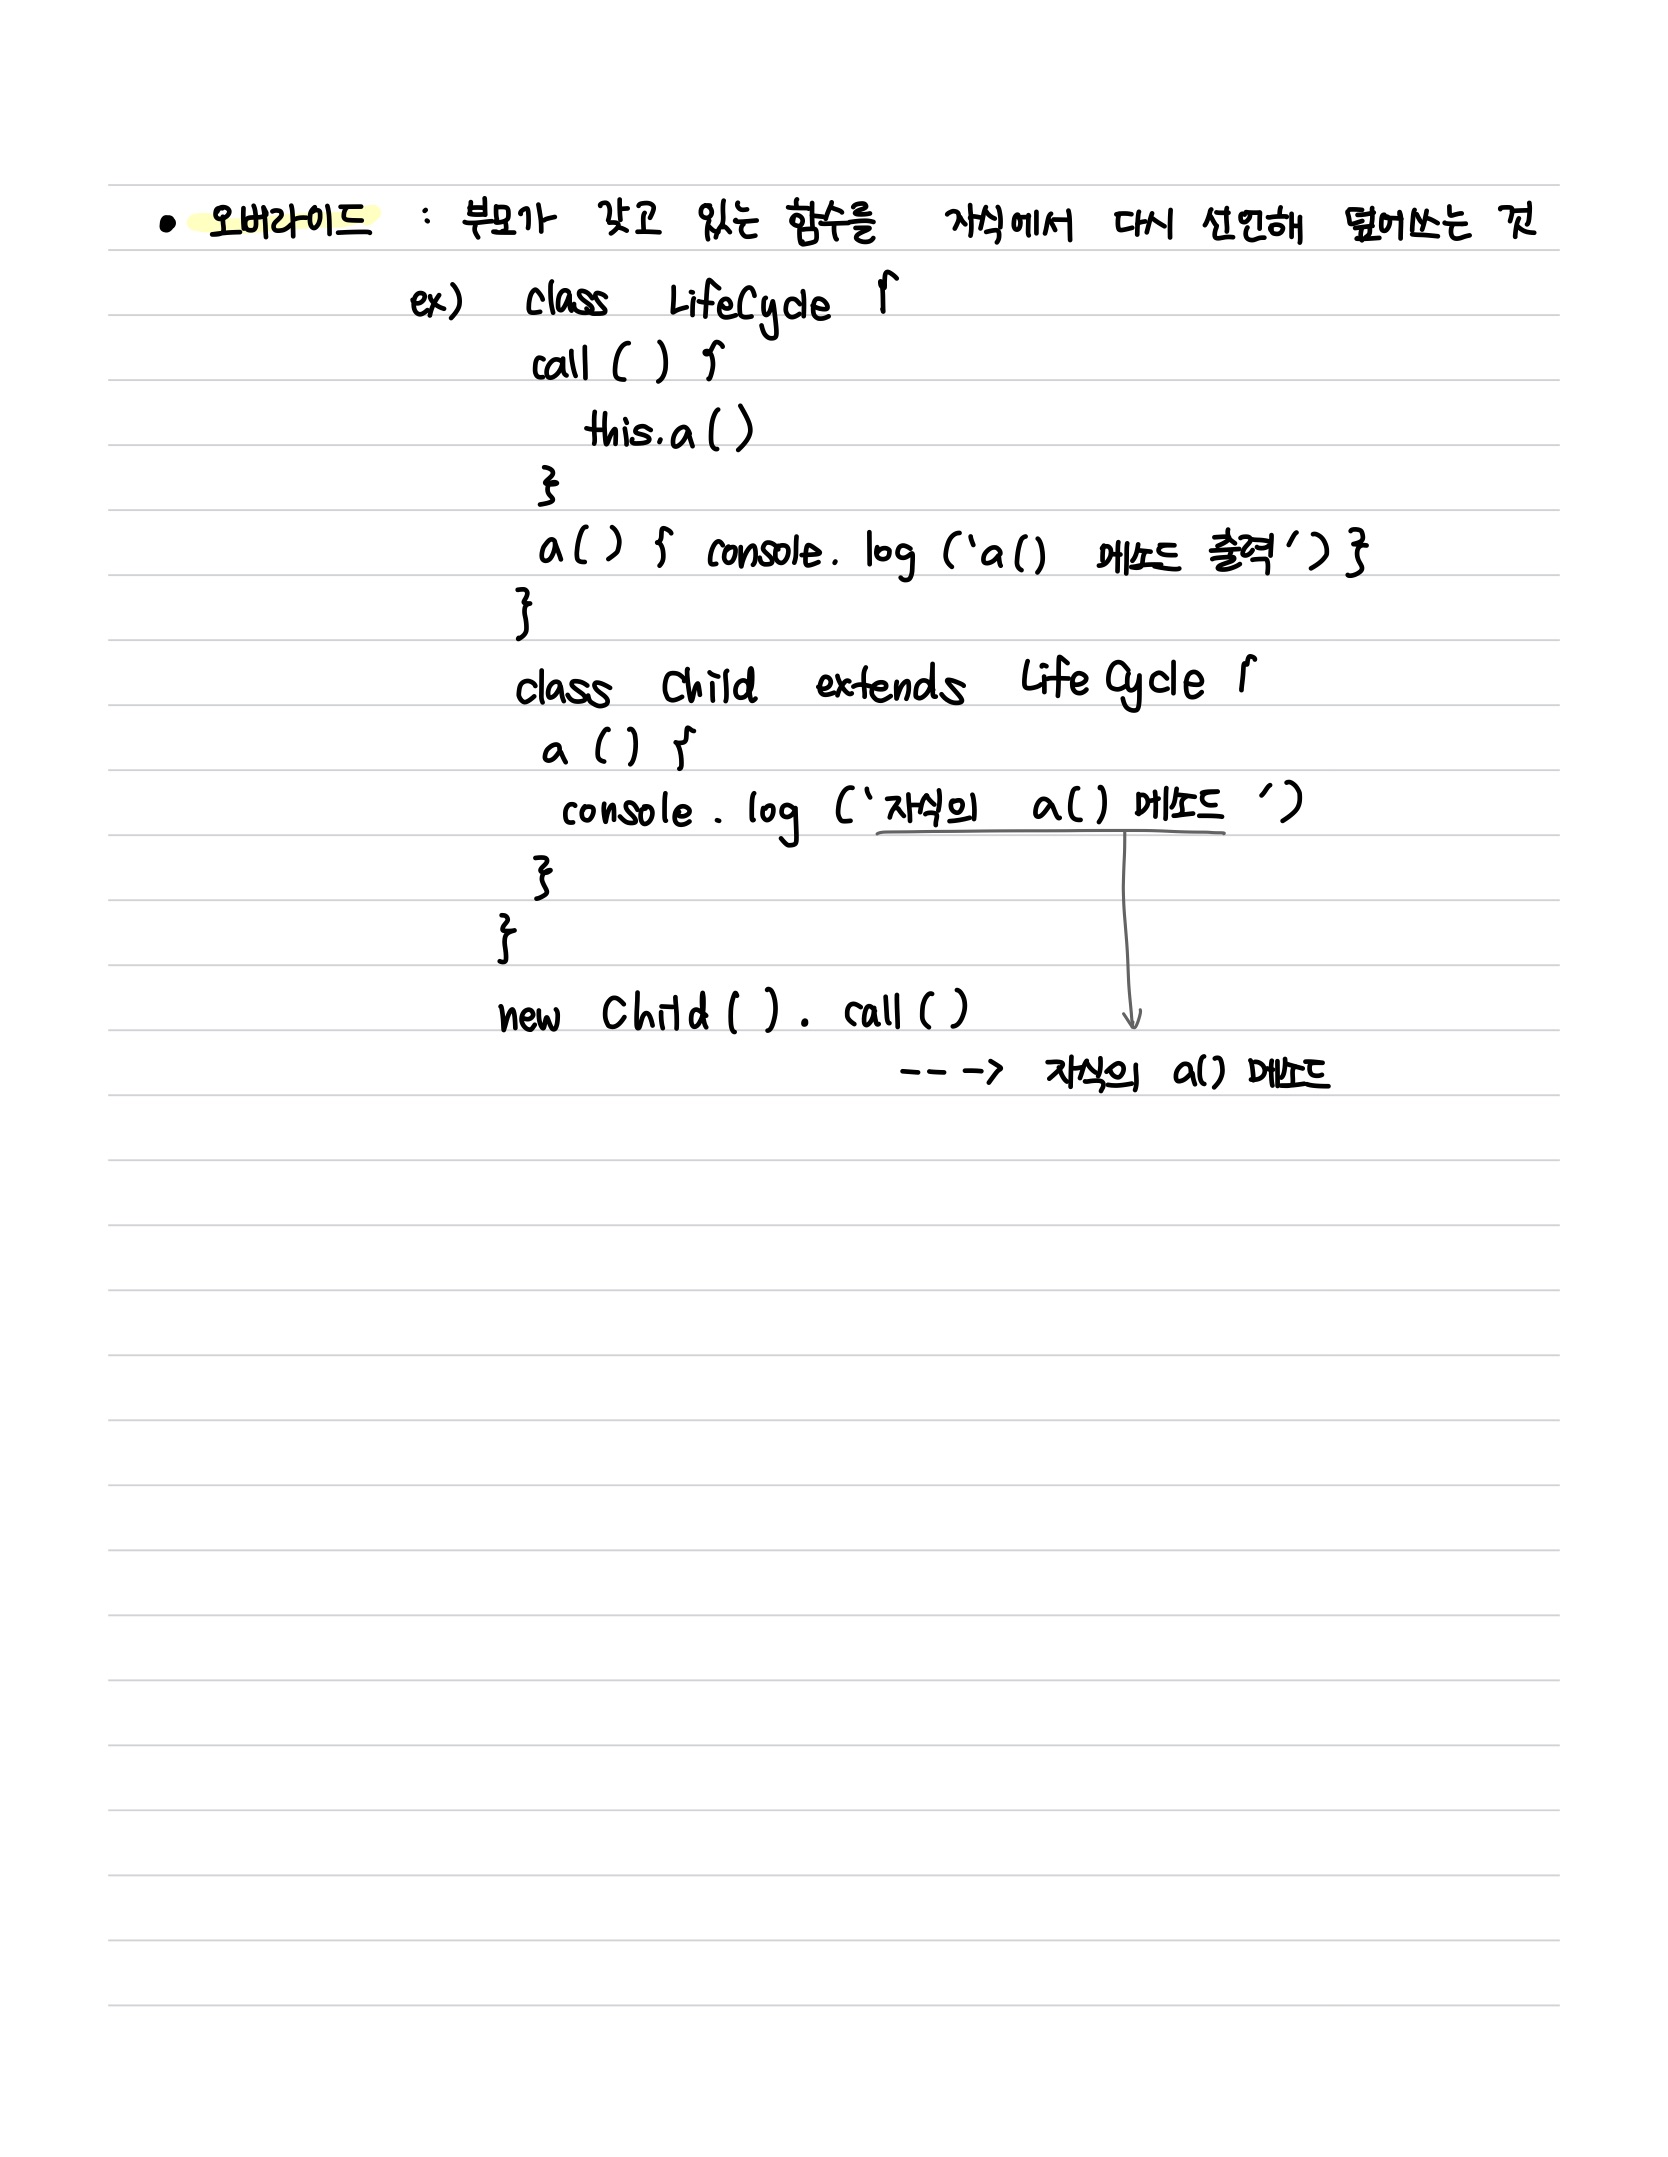 • 오버라이드 : 부모가 갖고 있는 함수를 자식에서 다시 선언해 덮어쓰는 것
ex) class LifeCycle {
call ( ) {
this.a ( )
}
a ( ) { console. log ('a() 메소드 출력') }
}
class Child extends Life Cycle {
a ( ) {
console . log ('자식의 a() 메소드 ')
}
}
new Child ( ) . call ( )
---> 자식의 a() 메소드